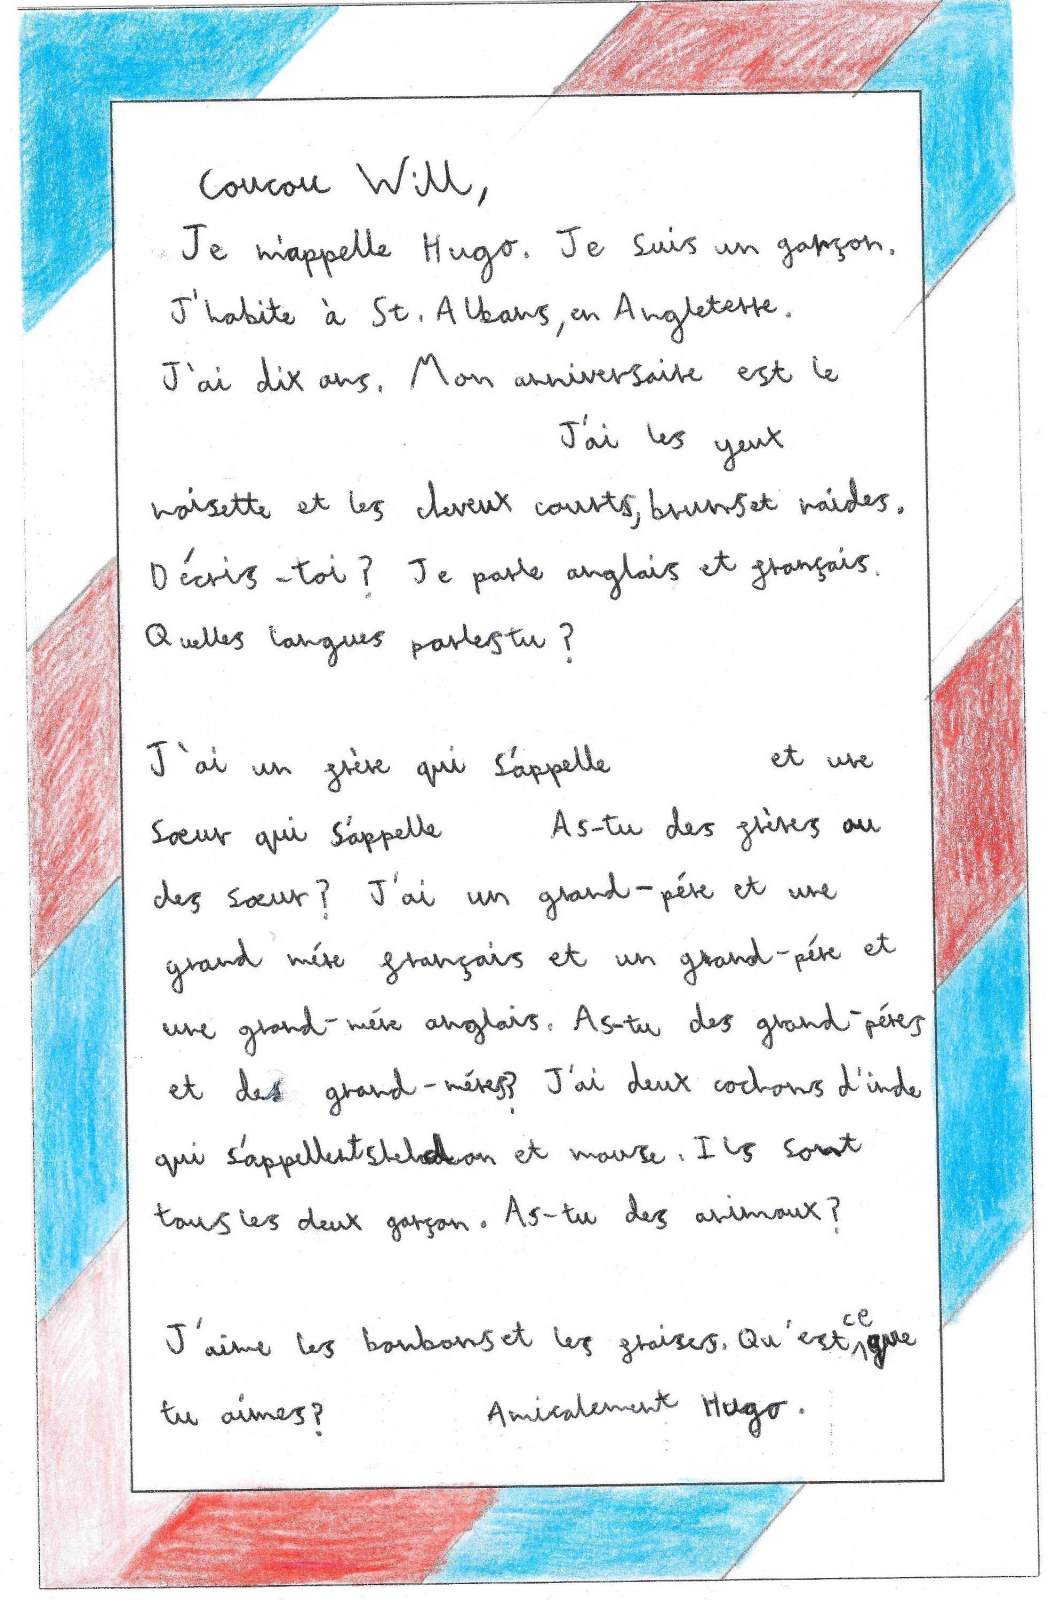 Coucou Will,
Je m'appelle Hugo. Je suis un garçon.
J'habite à St. Albans, en Angleterre.
J'ai dix ans. Mon anniversaire est le
J'ai les yeux
noisette et les cheveux courts, bruns et raides.
Décris-toi? Je parle anglais et français.
Quelles langues parles tu?
J'ai un frère qui s'appelle et une
sœur qui s'appelle As-tu des frères ou
des sœur? J'ai un grand-pére et une
grand mére français et un grand-pére et
une grand-mére anglais. As-tu des grand-péres
et des grand-méres? J'ai deux cochons d'inde
qui s'appellent et mouse. Ils sont
tous les deux garçon. As-tu des animaux?
J'aime les bonbons et les fraises. Qu'est ce que
tu aimes? Amicalement Hugo.